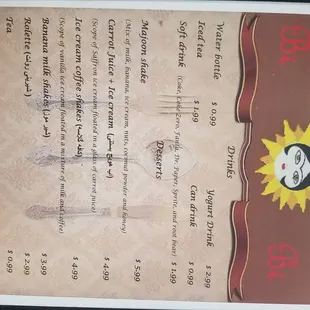 Bi
Bi
Drinks
Water bottle $ 0.99
Yogurt Drink $ 2.99
Iced tea $ 1.99
Can drink $ 0.99
Soft drink (Coke, Coke Zero, Fanta, Dr. Paper, Sprite, and root bear) $ 1.99
Desserts
Majoon shake $ 5.99
(Mix of milk, banana, ice cream, nuts, coconut powder and honey)
Carrot Juice + Ice cream (آب هویج بستنی) $ 4.99
(Scope of Saffron ice cream floated in a glass of carrot juice)
Ice cream coffee shakes (کافه گلاسه) $ 4.99
(Scope of vanilla ice cream floated in a mixture of milk and coffee)
Banana milk shakes (شیر موز) $ 3.99
Rolette (شیرینی رولت) $ 2.99
Tea $ 0.99